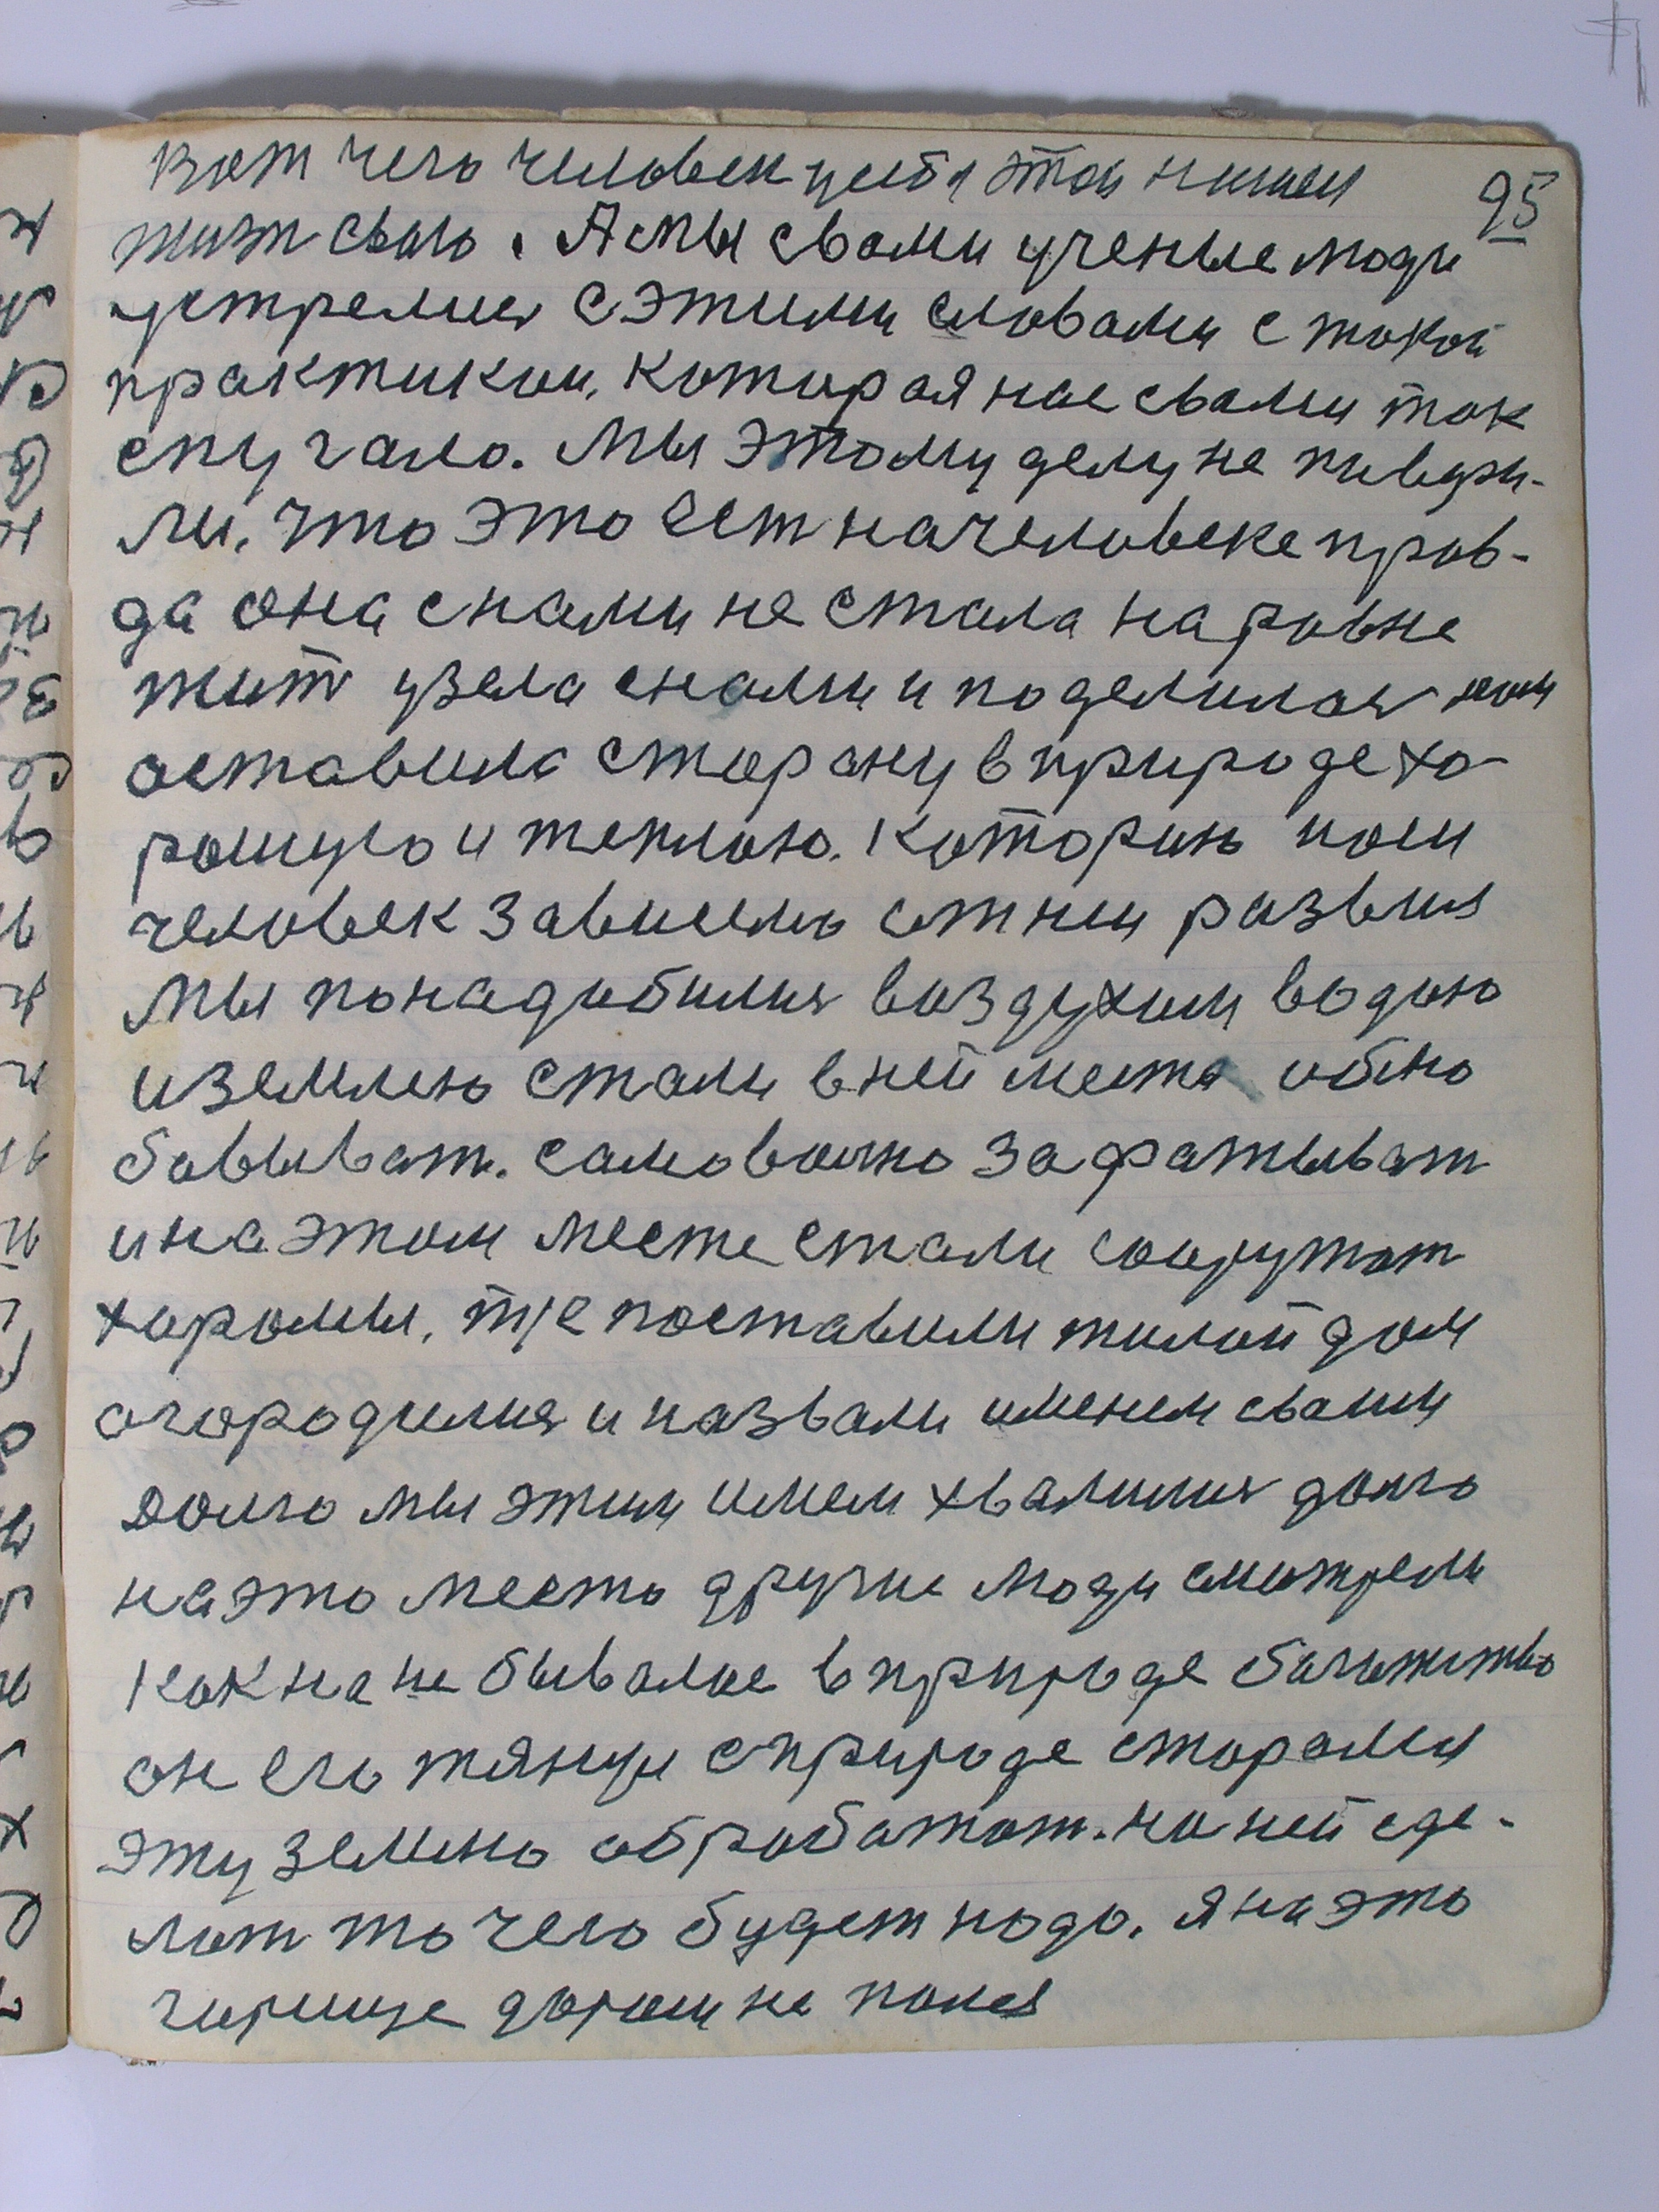 вот чего человек у себя этой
95
жизн свою. А мы свами ученые люди
устрелис с этими словами с такой
практикой, которая нас свами так
спугало. Мы этому делу не повери-
ли, что это ест на человеке прав-
да она снами не стала наровне
жит узела снами и поделилас нам
оставила сторану в природе хо-
рошую и теплою. Которию
человек зависемо от ней развился
мы понадобилис воздухом водою
и землею стали в ней места обно
бовыват. самовольно зафатыват
и на этом месте стали сооружат
харомы, туе поставили жилой дом
огородилис и назвали именем своим
Долго мы этим имем хвалилис долго
на это место другие люди смотрели
как на не бывалое в природе богатство
он его тянул с природе старался
эту землю обработат. на ней сде-
лат то чего будет надо. я на это
дорош не